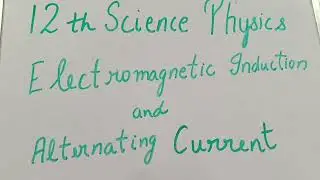 12th Science Physics
Electromagnetic Induction
and
Alternating Current